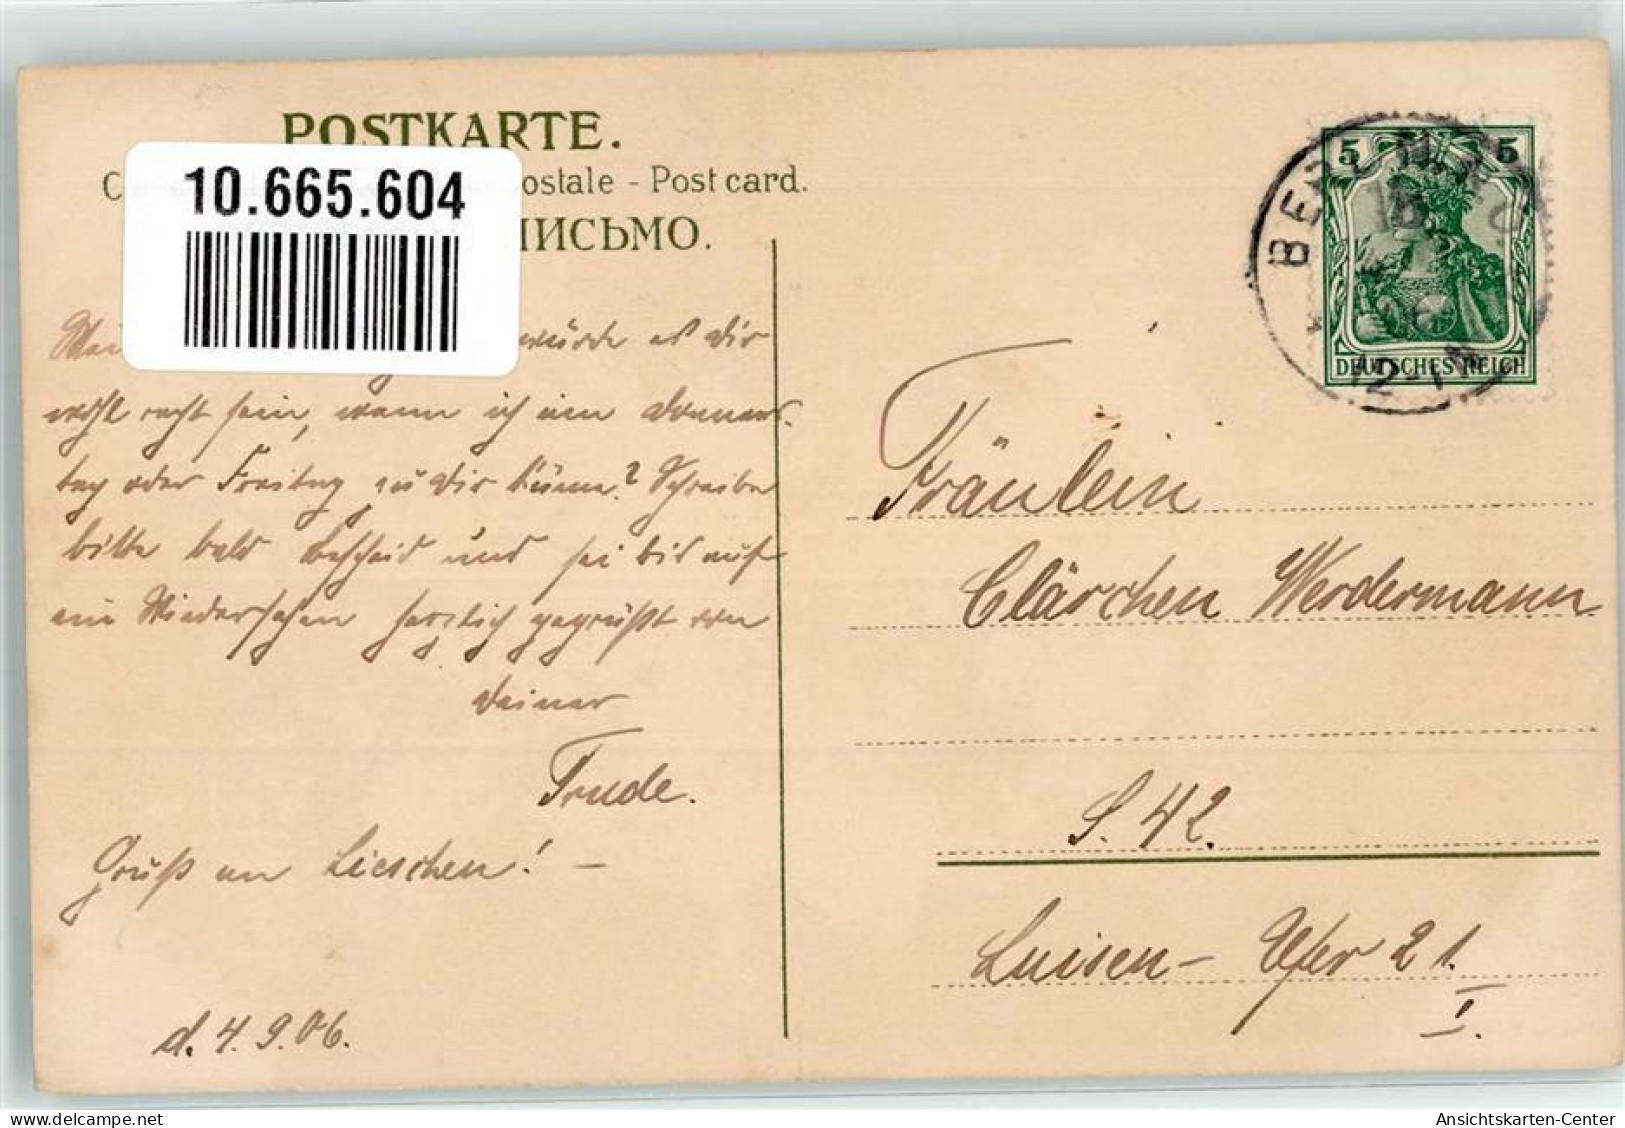 POSTKARTE.
ostale - Post card.
ПИСЬМО.
10.665.604
würde es dir
wohl recht sein, wenn ich am Donners-
tag oder Freitag zu dir käme? Schreibe
bitte bald Bescheid und sei bis auf
ein Wiedersehen herzlich gegrüßt von
deiner
Trude.
Gruß an Lieschen! –
d. 4. 9. 06.
5 5
DEUTSCHES REICH
BERLIN
12-1
Fräulein
Clärchen Werdermann
S. 42.
Luisen-Ufer 21.
I.
Ansichtskarten-Center